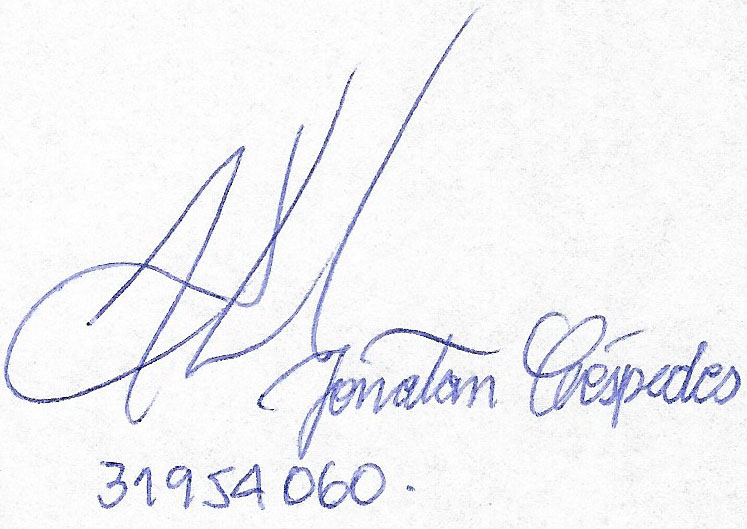 Jonatan Céspedes
31954060.